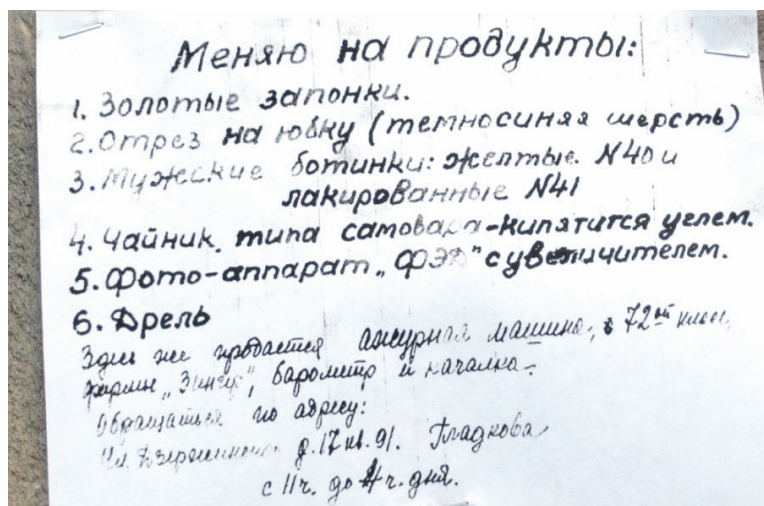 Меняю на продукты:
1. Золотые запонки.
2. Отрез на юбку (темносиняя шерсть)
3. Мужские ботинки: желтые N40 и
лакированные N41
4. Чайник типа самовара-кипятится углем.
5. Фото-аппарат „ФЭД" с увеличителем.
6. Дрель
Здесь же продается ажурная машина, 72ой
фирмы „Зингер", барометр и качалка.
Обращаться по адресу:
Ул. Дзержинского д. 17 кв. 91. Гладкова
с 11ч. до 4ч. дня.